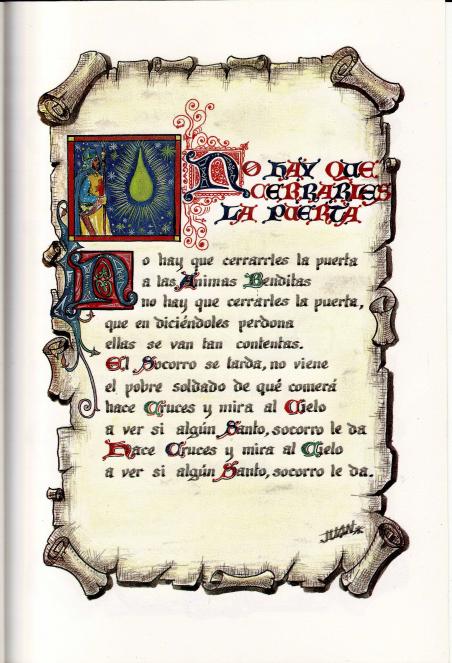 NO HAY QUE
CERRARLES
LA PUERTA
No hay que cerrarrles la puerta
a las Animas Benditas
no hay que cerrarles la puerta,
que en diciéndoles perdona
ellas se van tan contentas.
El Socorro se tarda, no viene
el pobre soldado de qué comerá
hace Cruces y mira al Cielo
a ver si algún Santo, socorro le da
Hace Cruces y mira al Cielo
a ver si algún Santo, socorro le da.
JUAN